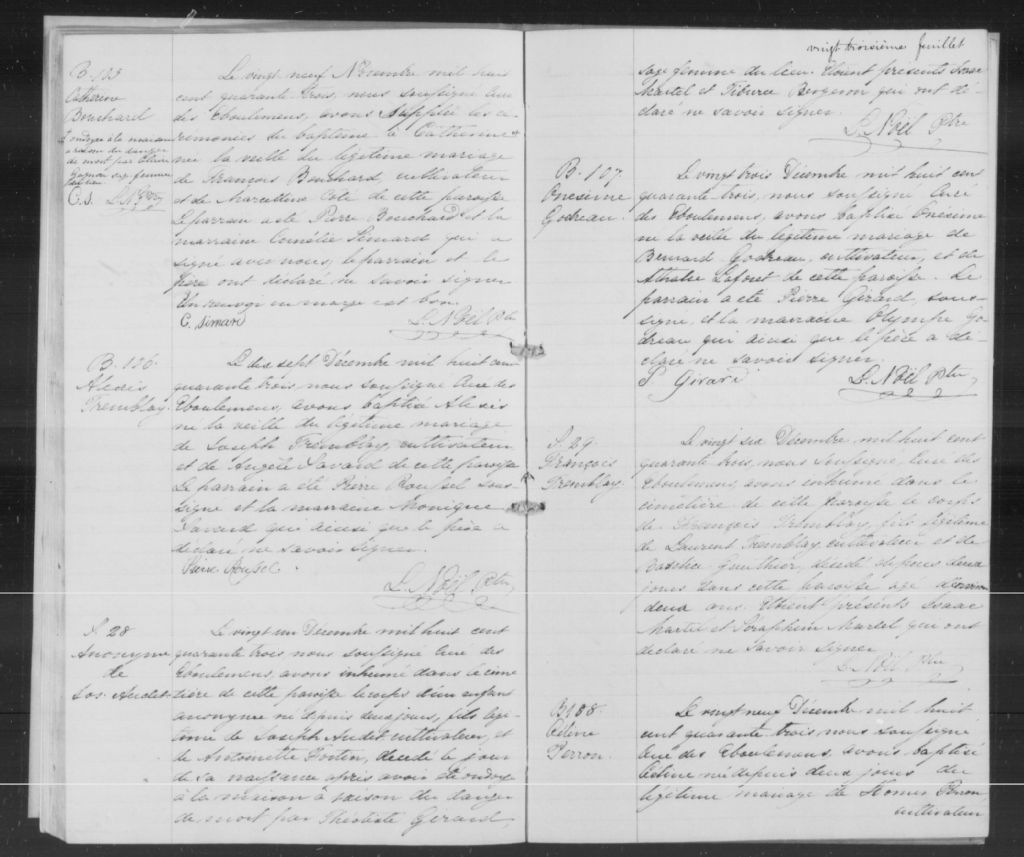 B. 105
Catherine
Bouchard
ondoyée à la maison
à raison du danger
de mort par
Gagnon sage femme
C. S. L. N. Ptre
Le vingt neuf Novembre mil huit
cent quarante trois, nous soussigné Curé
des Eboulemens, avons suppléé les cé-
rémonies du baptême à Catherine
née la veille du légitime mariage
de François Bouchard, cultivateur
et de Marcelline Coté de cette paroisse
Le parrain a été Pierre Bouchard et la
marraine Simard qui a
signé avec nous, le parrain et le
père ont déclaré ne savoir signer
Un renvoi en marge est bon.
C. Simard L. Noël Ptre
B. 106.
Alexis
Tremblay.
Le dix sept Décembre mil huit cent
quarante trois, nous soussigné Curé des
Eboulemens, avons baptisé Alexis
né la veille du légitime mariage
de Joseph Tremblay, cultivateur
et de Angèle Savard de cette paroisse
Le parrain a été Pierre Roussel sous-
signé et la marraine Monique
Savard qui ainsi que le père a
déclaré ne savoir signer.
Pierre Roussel.
L. Noël Ptre
S. 28
Anonyme
de
Jos. Audet
Le vingt un Décembre mil huit cent
quarante trois, nous soussigné Curé des
Eboulemens, avons inhumé dans le cime
tière de cette paroisse le corps d'un enfant
anonyme né depuis deux jours, fils légi-
time de Joseph Audet cultivateur, et
de Antoinette Fortin, décédé le jour
de sa naissance après avoir été ondoyé
à la maison à raison du danger
de mort par Théotiste Gérard,
vingt troisième feuillet
sage femme du lieu. Etoient présents Isaac
Martel et Tiburce Bergeron qui ont dé-
claré ne savoir signer.
L. Noël Ptre
B. 107.
Onésime
Godreau.
Le vingt trois Décembre mil huit cent
quarante trois, nous soussigné Curé
des Eboulemens, avons baptisé Onésime
né la veille du légitime mariage de
Bernard Godreau, cultivateur, et de
Laforet de cette paroisse. Le
parrain a été Pierre Girard, sous-
signé, et la marraine Olympe Go-
dreau qui ainsi que le père a dé-
claré ne savoir signer.
P Girard L. Noël Ptre
S. 29.
François
Tremblay.
Le vingt six Décembre mil huit cent
quarante trois, nous soussigné, Curé des
Eboulemens, avons inhumé dans le
cimetière de cette paroisse le corps
de François Tremblay, fils légitime
de Laurent Tremblay cultivateur et de
Gauthier, décédé depuis deux
jours dans cette paroisse agé d'environ
deux ans. Etoient présents Isaac
Martel et Séraphin Martel qui ont
déclaré ne savoir signer
L. Noël Ptre
B 108.
Céline
Perron.
Le vingt neuf Décembre mil huit
cent quarante trois, nous soussigné
Curé des Eboulemens, avons baptisé
Céline née depuis deux jours du
légitime mariage de Perron
cultivateur